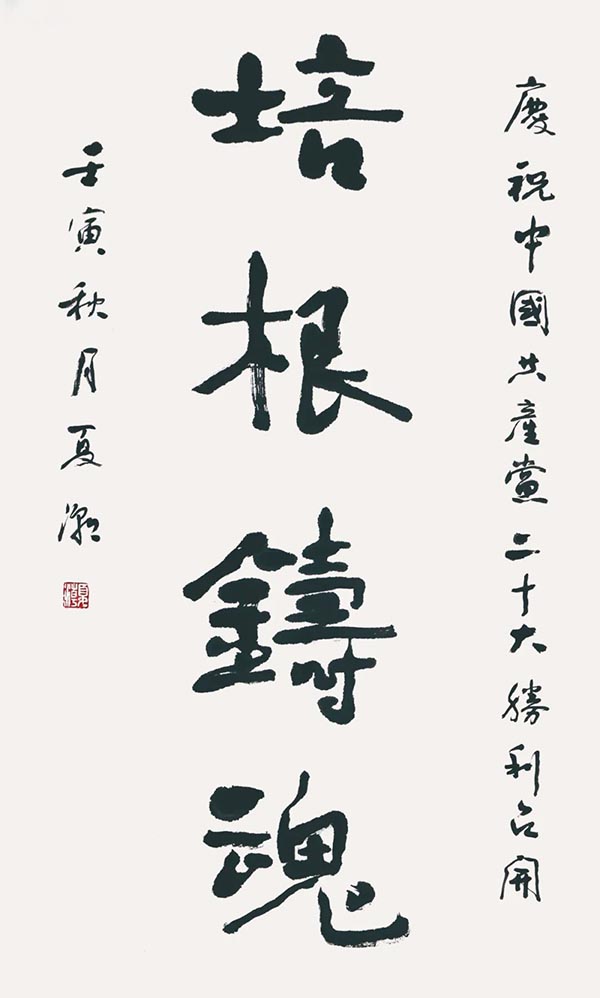 慶祝中國共產黨二十大勝利召開
培根鑄魂
壬寅秋月夏潮